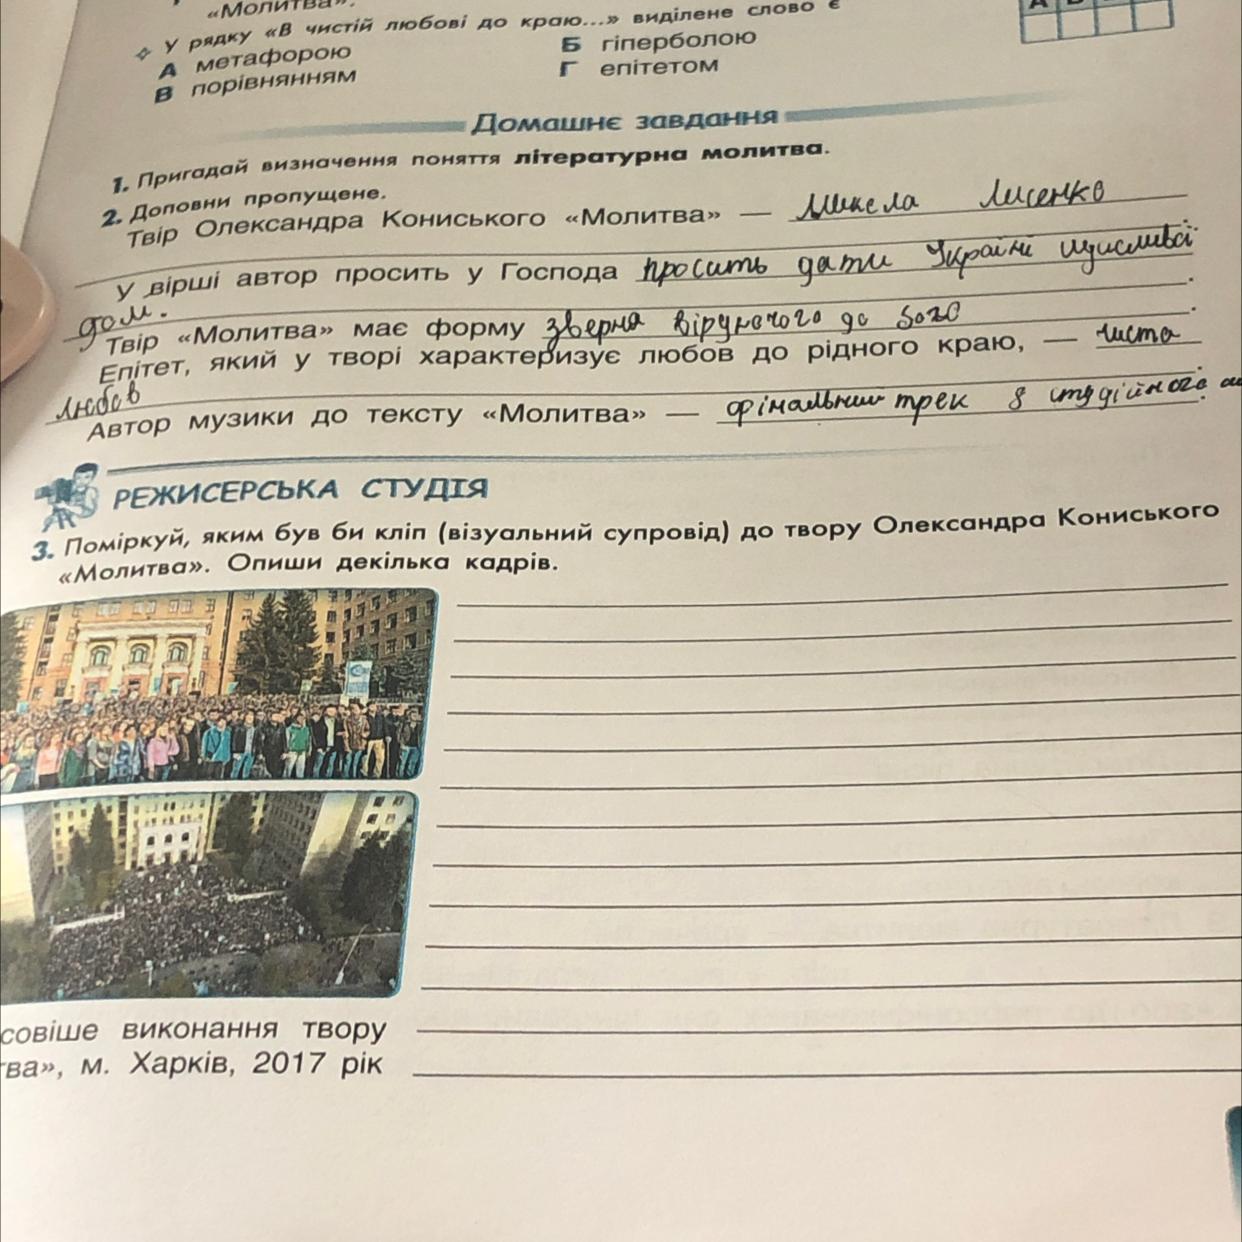 «Молитва».
У рядку «В чистій любові до краю...» виділене слово є
А метафорою Б гіперболою
В порівнянням Г епітетом
Домашнє завдання
1. Пригадай визначення поняття літературна молитва.
2. Доповни пропущене.
Твір Олександра Кониського «Молитва» — Микола Лисенко
У вірші автор просить у Господа просить дати Україні щасливої
дол.
Твір «Молитва» має форму
Епітет, який у творі характеризує любов до рідного краю, — чиста
любов
Автор музики до тексту «Молитва» — фінальний трек 8 студійного
РЕЖИСЕРСЬКА СТУДІЯ
3. Поміркуй, яким був би кліп (візуальний супровід) до твору Олександра Кониського
«Молитва». Опиши декілька кадрів.
совіше виконання твору
тва», м. Харків, 2017 рік